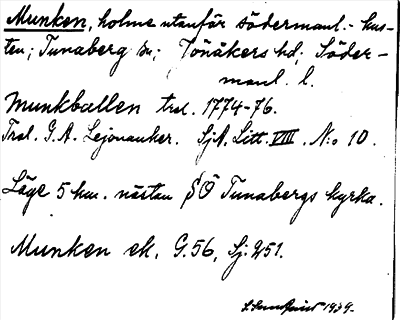 Munken, holme utanför södermanl.- kus-
ten; Tunaberg sn; Jönåkers hd; Söder-
manl. l.
Munkballen trol. 1774-76.
Trol. G.A. Lejonanker. SjA. Litt. VIII. N:o 10.
Läge 5 km. nästan S Ö Tunabergs kyrka.
Munken ek. G.56, Sj. 251.
1939.